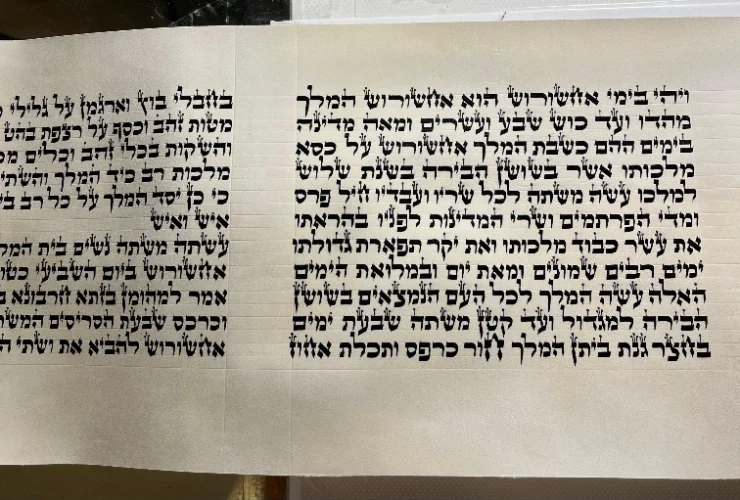 ויהי בימי אחשורוש הוא אחשורוש המלך
מהדו ועד כוש שבע ועשרים ומאה מדינה
בימים ההם כשבת המלך אחשורוש על כסא
מלכותו אשר בשושן הבירה בשנת שלוש
למלכו עשה משתה לכל שריו ועבדיו חיל פרס
ומדי הפרתמים ושרי המדינות לפניו בהראתו
את עשר כבוד מלכותו ואת יקר תפארת גדולתו
ימים רבים שמונים ומאת יום ובמלואת הימים
האלה עשה המלך לכל העם הנמצאים בשושן
הבירה למגדול ועד קטן משתה שבעת ימים
בחצר גנת ביתן המלך חור כרפס ותכלת אחוז
בחבלי בוץ וארגמן על גלילי
מטות זהב וכסף על רצפת
והשקות בכלי זהב וכלים
מלכות רב כיד המלך
כי כן יסד המלך על כל רב
איש ואיש
עשתה משתה נשים בית
אחשורוש ביום השביעי
אמר למהומן בזתא חרבונא
וכרכס שבעת הסריסים
אחשורוש להביא את ושתי